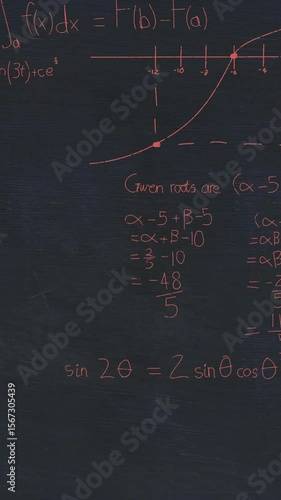 ∫a f(x)dx = F(b)-F(a)
n(3t)+ce
-12 -10 -8 -6 -4
Given roots are (α-5
α-5+β-5
=α+β-10
=2/5-10
=-48/5
(α-
=αβ
=αβ
=-2
=11
sin 2θ = 2 sinθ cosθ
Adobe Stock | #1567305439